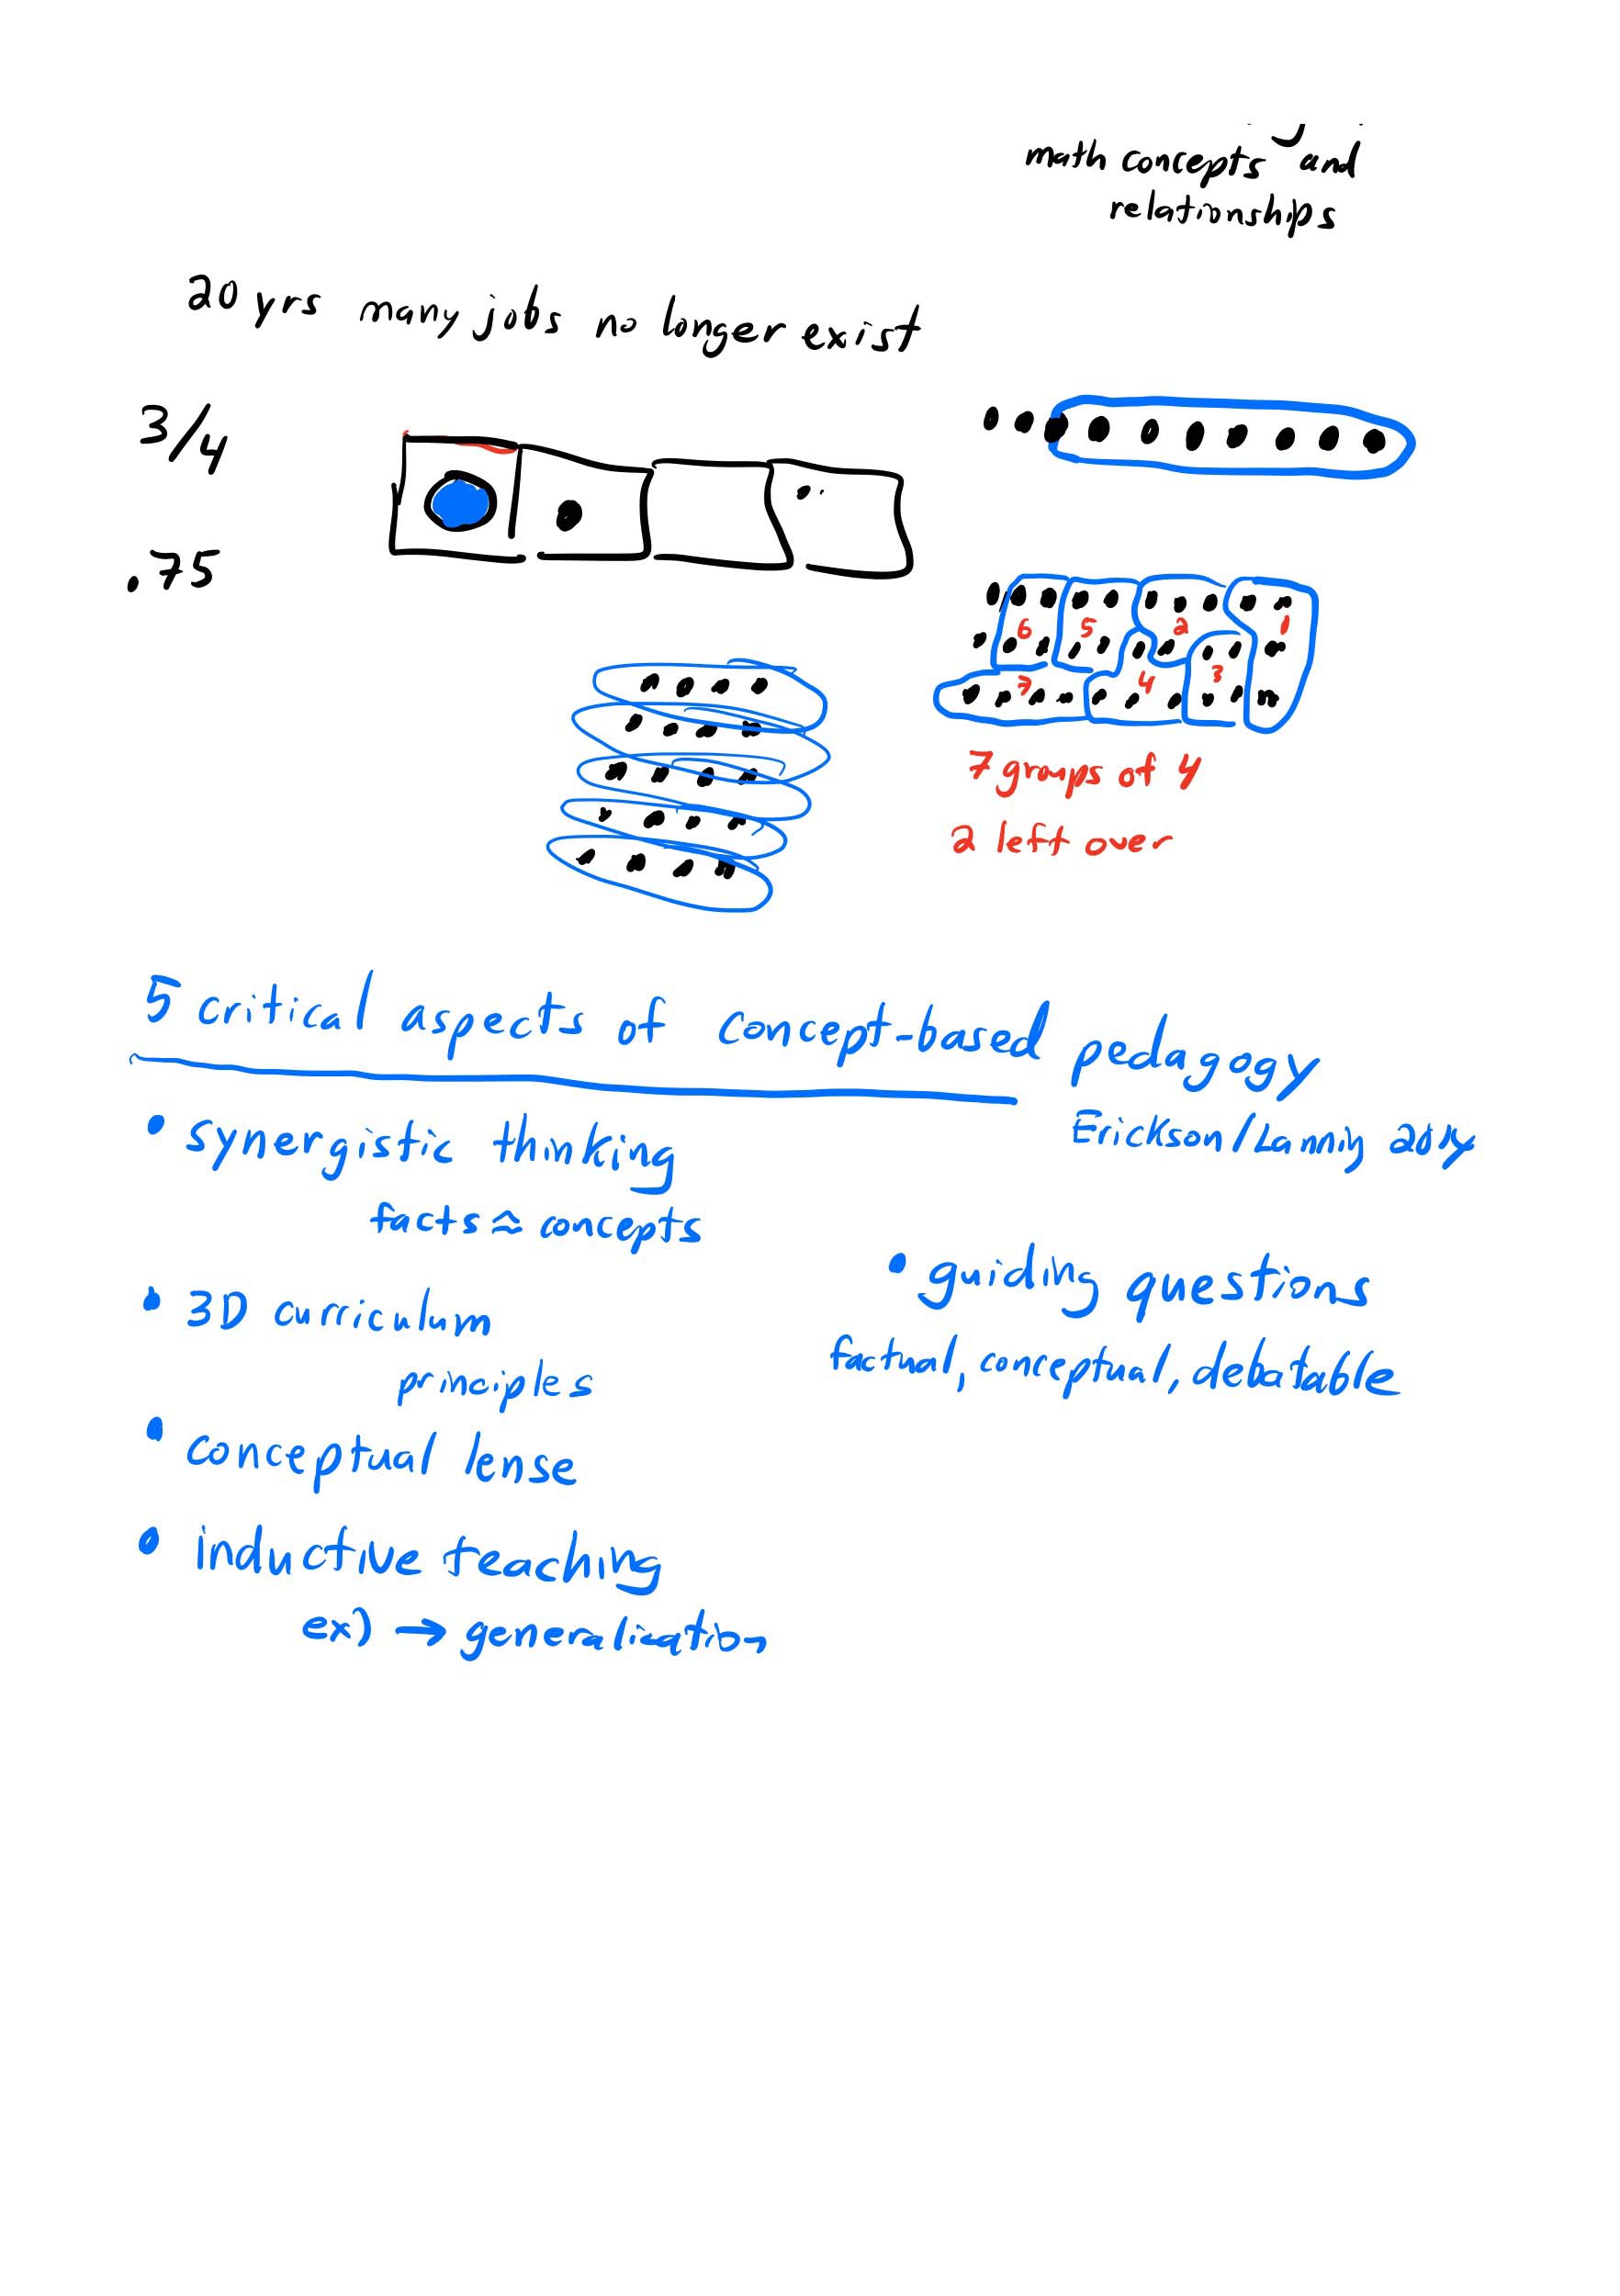 math concepts and
relationships
20 yrs many jobs no longer exist
3/4
.75
6 5 2 1
7 4 3
7 groups of 4
2 left over
5 critical aspects of concept-based pedagogy
Erickson/Lanning 2014
• synergistic thinking
facts ≈ concepts
• 3D curriculum
principles
• conceptual lense
• inductive teaching
ex) → generalization
• guiding questions
factual, conceptual, debatable